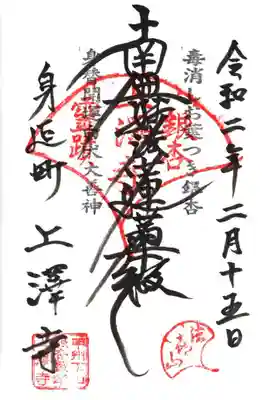 令和二年二月十五日
毒消しお葉つき銀杏
銀杏
南無妙法蓮華經
靈跡
大善神
身延町 上澤寺